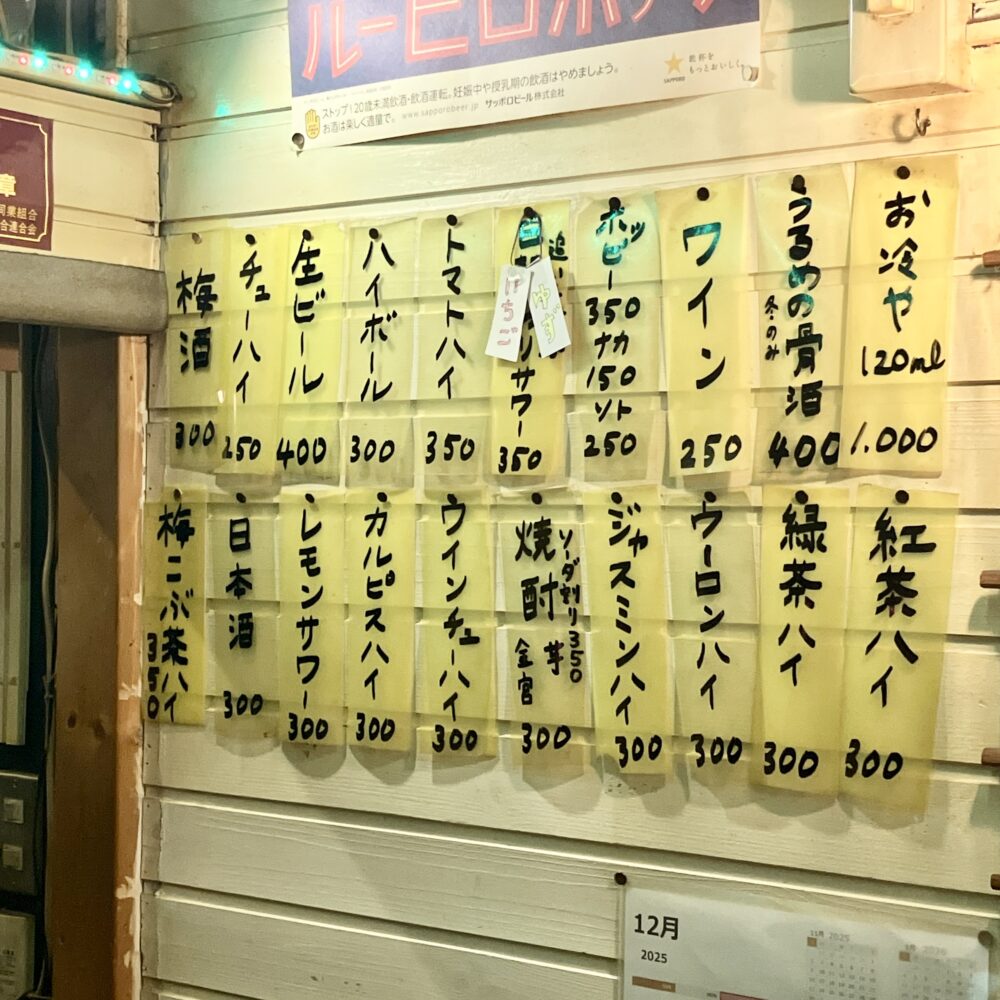 ストップ!20歳未満飲酒・飲酒運転。妊娠中や授乳期の飲酒はやめましょう。
お酒は楽しく適量で。 www.sapporobeer.jp サッポロビール株式会社
SAPPORO
乾杯を
もっとおいしく。
章
同業組合
合連合会
お冷や 120ml 1.000
うるめの骨酒 冬のみ 400
ワイン 250
ホッピー 350
ナカ 150
ソト 250
サワー 350
いちご
ゆず
トマトハイ 350
ハイボール 300
生ビール 400
チューハイ 250
梅酒 300
紅茶ハイ 300
緑茶ハイ 300
ウーロンハイ 300
ジャスミンハイ 300
焼酎 芋 金宮 300
ソーダ割り350
ウインチューハイ 300
カルピスハイ 300
レモンサワー 300
日本酒 300
梅こぶ茶ハイ 350
12月
2025
11月 2025